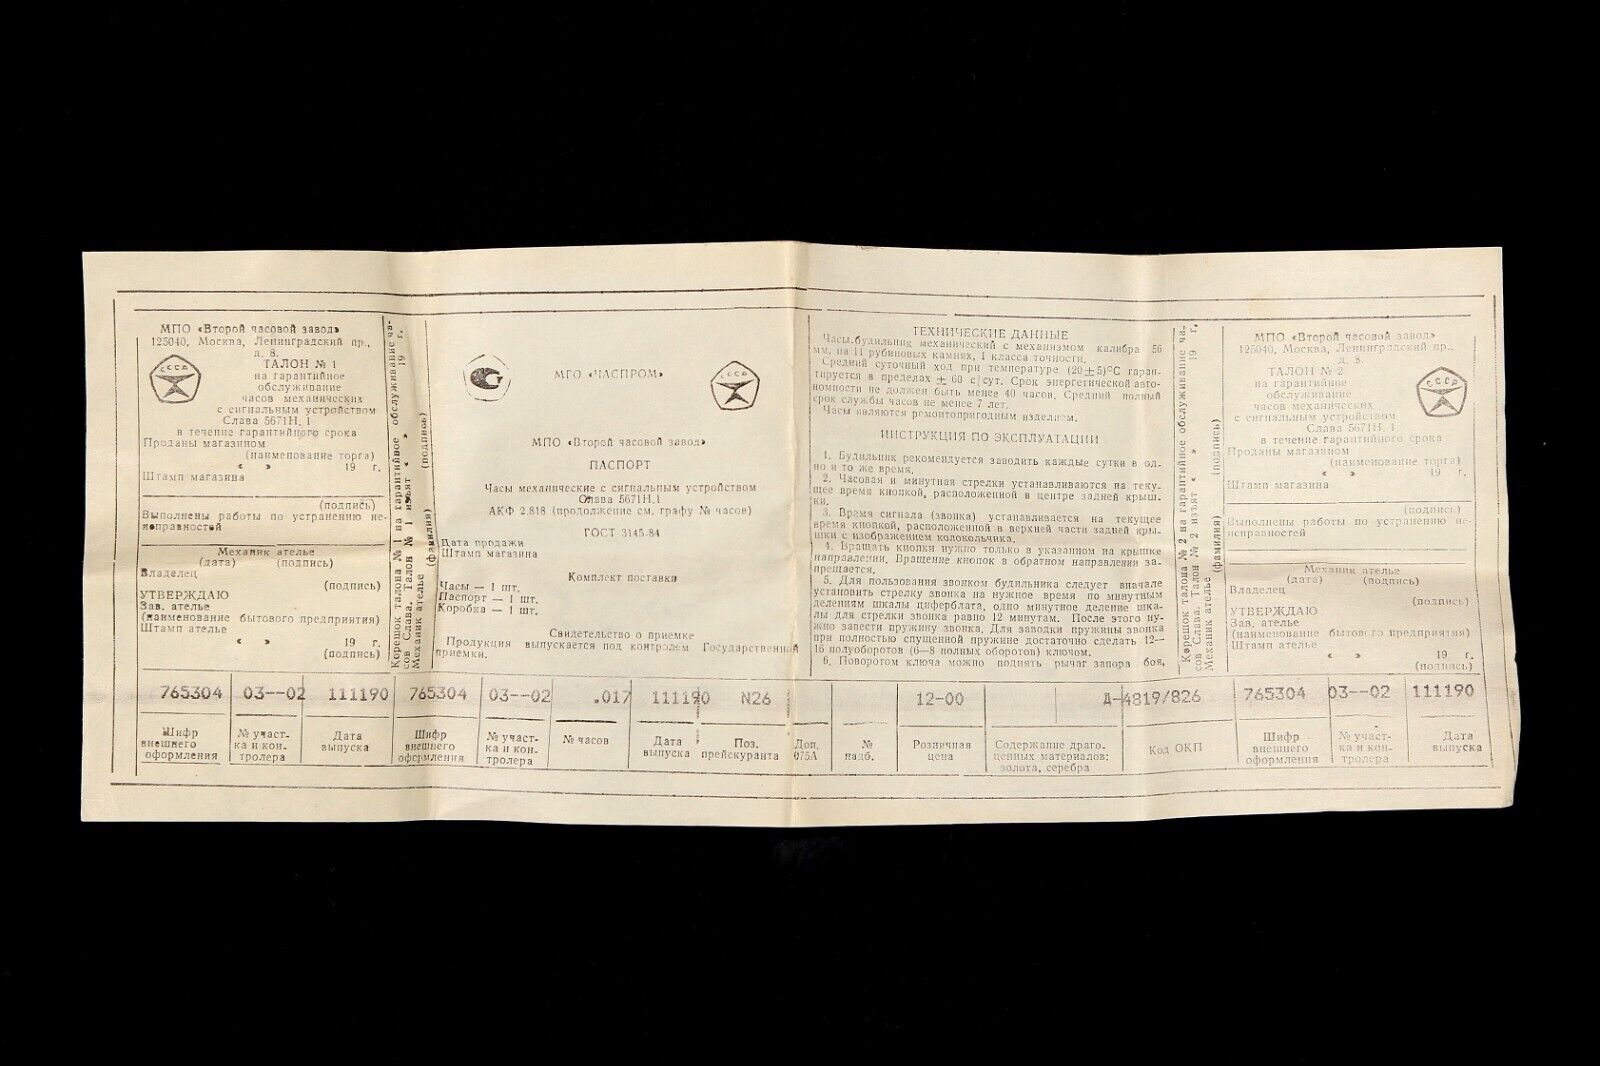 МПО «Второй часовой завод»
125040, Москва, Ленинградский пр.,
д. 8.
СССР
ТАЛОН № 1
на гарантийное
обслуживание
часов механических
с сигнальным устройством
Слава 5671Н.1
в течение гарантийного срока
Проданы магазином
(наименование торга)
« » 19 г.
Штамп магазина
(подпись)
Выполнены работы по устранению не-
исправностей
Механик ателье
(дата) (подпись)
Владелец
(подпись)
УТВЕРЖДАЮ
Зав. ателье
(наименование бытового предприятия)
Штамп ателье
« » 19 г.
(подпись)
Корешок талона № 1 на гарантийное обслуживание ча-
сов Слава. Талон № 1 изъят « » 19 г.
Механик ателье (фамилия) (подпись)
МГО «ЧАСПРОМ»
СССР
МПО «Второй часовой завод»
ПАСПОРТ
Часы механические с сигнальным устройством
Слава 5671Н.1
АКФ 2.818 (продолжение см. графу № часов)
ГОСТ 3145-84
Дата продажи
Штамп магазина
Комплект поставки
Часы — 1 шт.
Паспорт — 1 шт.
Коробка — 1 шт.
Свидетельство о приемке
Продукция выпускается под контролем Государственной
приемки.
ТЕХНИЧЕСКИЕ ДАННЫЕ
Часы-будильник механический с механизмом калибра 56
мм, на 11 рубиновых камнях, 1 класса точности.
Средний суточный ход при температуре (20±5)°С гаран-
тируется в пределах ± 60 с/сут. Срок энергетической авто-
номности не должен быть менее 40 часов. Средний полный
срок службы часов не менее 7 лет.
Часы являются ремонтопригодным изделием.
ИНСТРУКЦИЯ ПО ЭКСПЛУАТАЦИИ
1. Будильник рекомендуется заводить каждые сутки в од-
но и то же время.
2. Часовая и минутная стрелки устанавливаются на теку-
щее время кнопкой, расположенной в центре задней крыш-
ки.
3. Время сигнала (звонка) устанавливается на текущее
время кнопкой, расположенной в верхней части задней кры-
шки с изображением колокольчика.
4. Вращать кнопки нужно только в указанном на крышке
направлении. Вращение кнопок в обратном направлении за-
прещается.
5. Для пользования звонком будильника следует вначале
установить стрелку звонка на нужное время по минутным
делениям шкалы циферблата, одно минутное деление шка-
лы для стрелки звонка равно 12 минутам. После этого ну-
жно завести пружину звонка. Для заводки пружины звонка
при полностью спущенной пружине достаточно сделать 12—
16 полуоборотов (6—8 полных оборотов) ключом.
6. Поворотом ключа можно поднять рычаг запора боя,
Корешок талона № 2 на гарантийное обслуживание ча-
сов Слава. Талон № 2 изъят « » 19 г.
Механик ателье (фамилия) (подпись)
МПО «Второй часовой завод»
125040, Москва, Ленинградский пр.,
д. 8.
СССР
ТАЛОН № 2
на гарантийное
обслуживание
часов механических
с сигнальным устройством
Слава 5671Н.1
в течение гарантийного срока
Проданы магазином
(наименование торга)
« » 19 г.
Штамп магазина
(подпись)
Выполнены работы по устранению не-
исправностей
Механик ателье
(дата) (подпись)
Владелец
(подпись)
УТВЕРЖДАЮ
Зав. ателье
(наименование бытового предприятия)
Штамп ателье
« » 19 г.
(подпись)
765304 03--02 111190 765304 03--02 .017 111190 N26 12-00 Д-4819/826 765304 03--02 111190
Шифр внешнего оформления
№ участ-ка и кон-тролера
Дата выпуска
Шифр внешнего оформления
№ участ-ка и кон-тролера
№ часов
Дата выпуска
Поз. прейскуранта
Доп. 075А
№ надб.
Розничная цена
Содержание драго-ценных материалов: золота, серебра
Код ОКП
Шифр внешнего оформления
№ участ-ка и кон-тролера
Дата выпуска